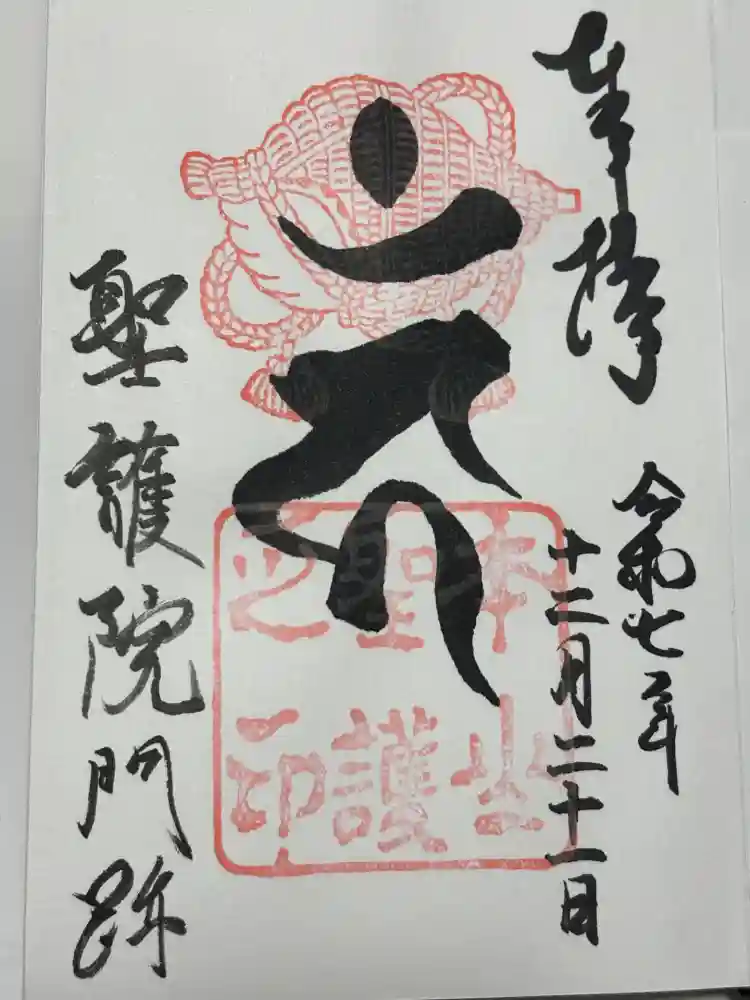 奉拝
令和七年
十二月二十一日
本山
聖護
之印
聖護院門跡